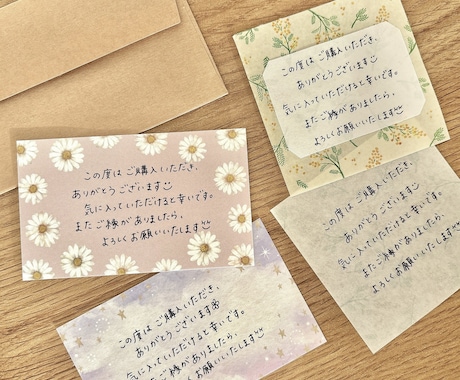 この度は ご購入いただき、
ありがとうございます
気に入っていただけると幸いです。
またご縁がありましたら、
よろしくお願いいたします
この度は ご購入いただき、
ありがとうございます
気に入っていただけると幸いです。
またご縁がありましたら、
よろしくお願いいたします
この度は ご購入いただき、
ありがとうございます
気に入っていただけると幸いです。
またご縁がありましたら、
よろしくお願いいたします
この度は ご購入いただき、
ありがとうございます
気に入っていただけると幸いです。
またご縁がありましたら、
よろしくお願いいたします